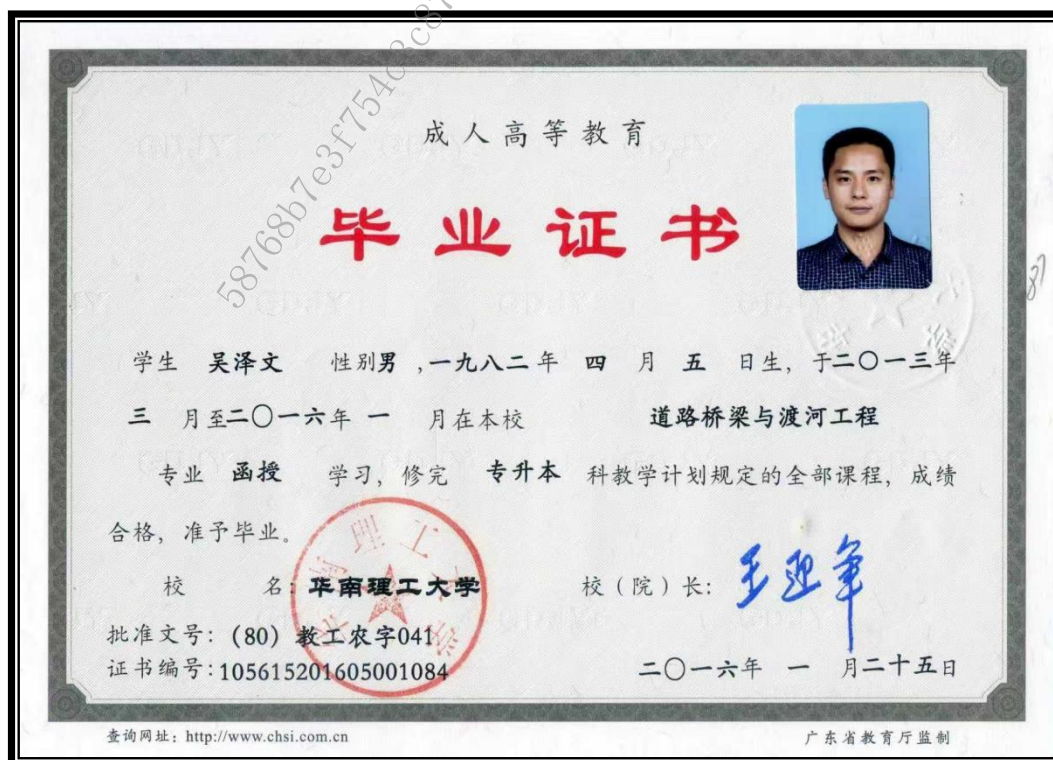 58768b7e3f754c3c87
成人高等教育
毕业证书
学生 吴泽文 性别男 ,一九八二年 四 月 五 日生, 于二〇一三年
三 月至二〇一六年 一 月在本校 道路桥梁与渡河工程
专业 函授 学习, 修完 专升本 科教学计划规定的全部课程, 成绩
合格, 准予毕业。
校 名: 华南理工大学 校(院)长: 王迎军
华南理工大学
批准文号: (80) 教工农字041
证书编号: 105615201605001084 二〇一六年 一 月二十五日
查询网址: http://www.chsi.com.cn 广东省教育厅监制